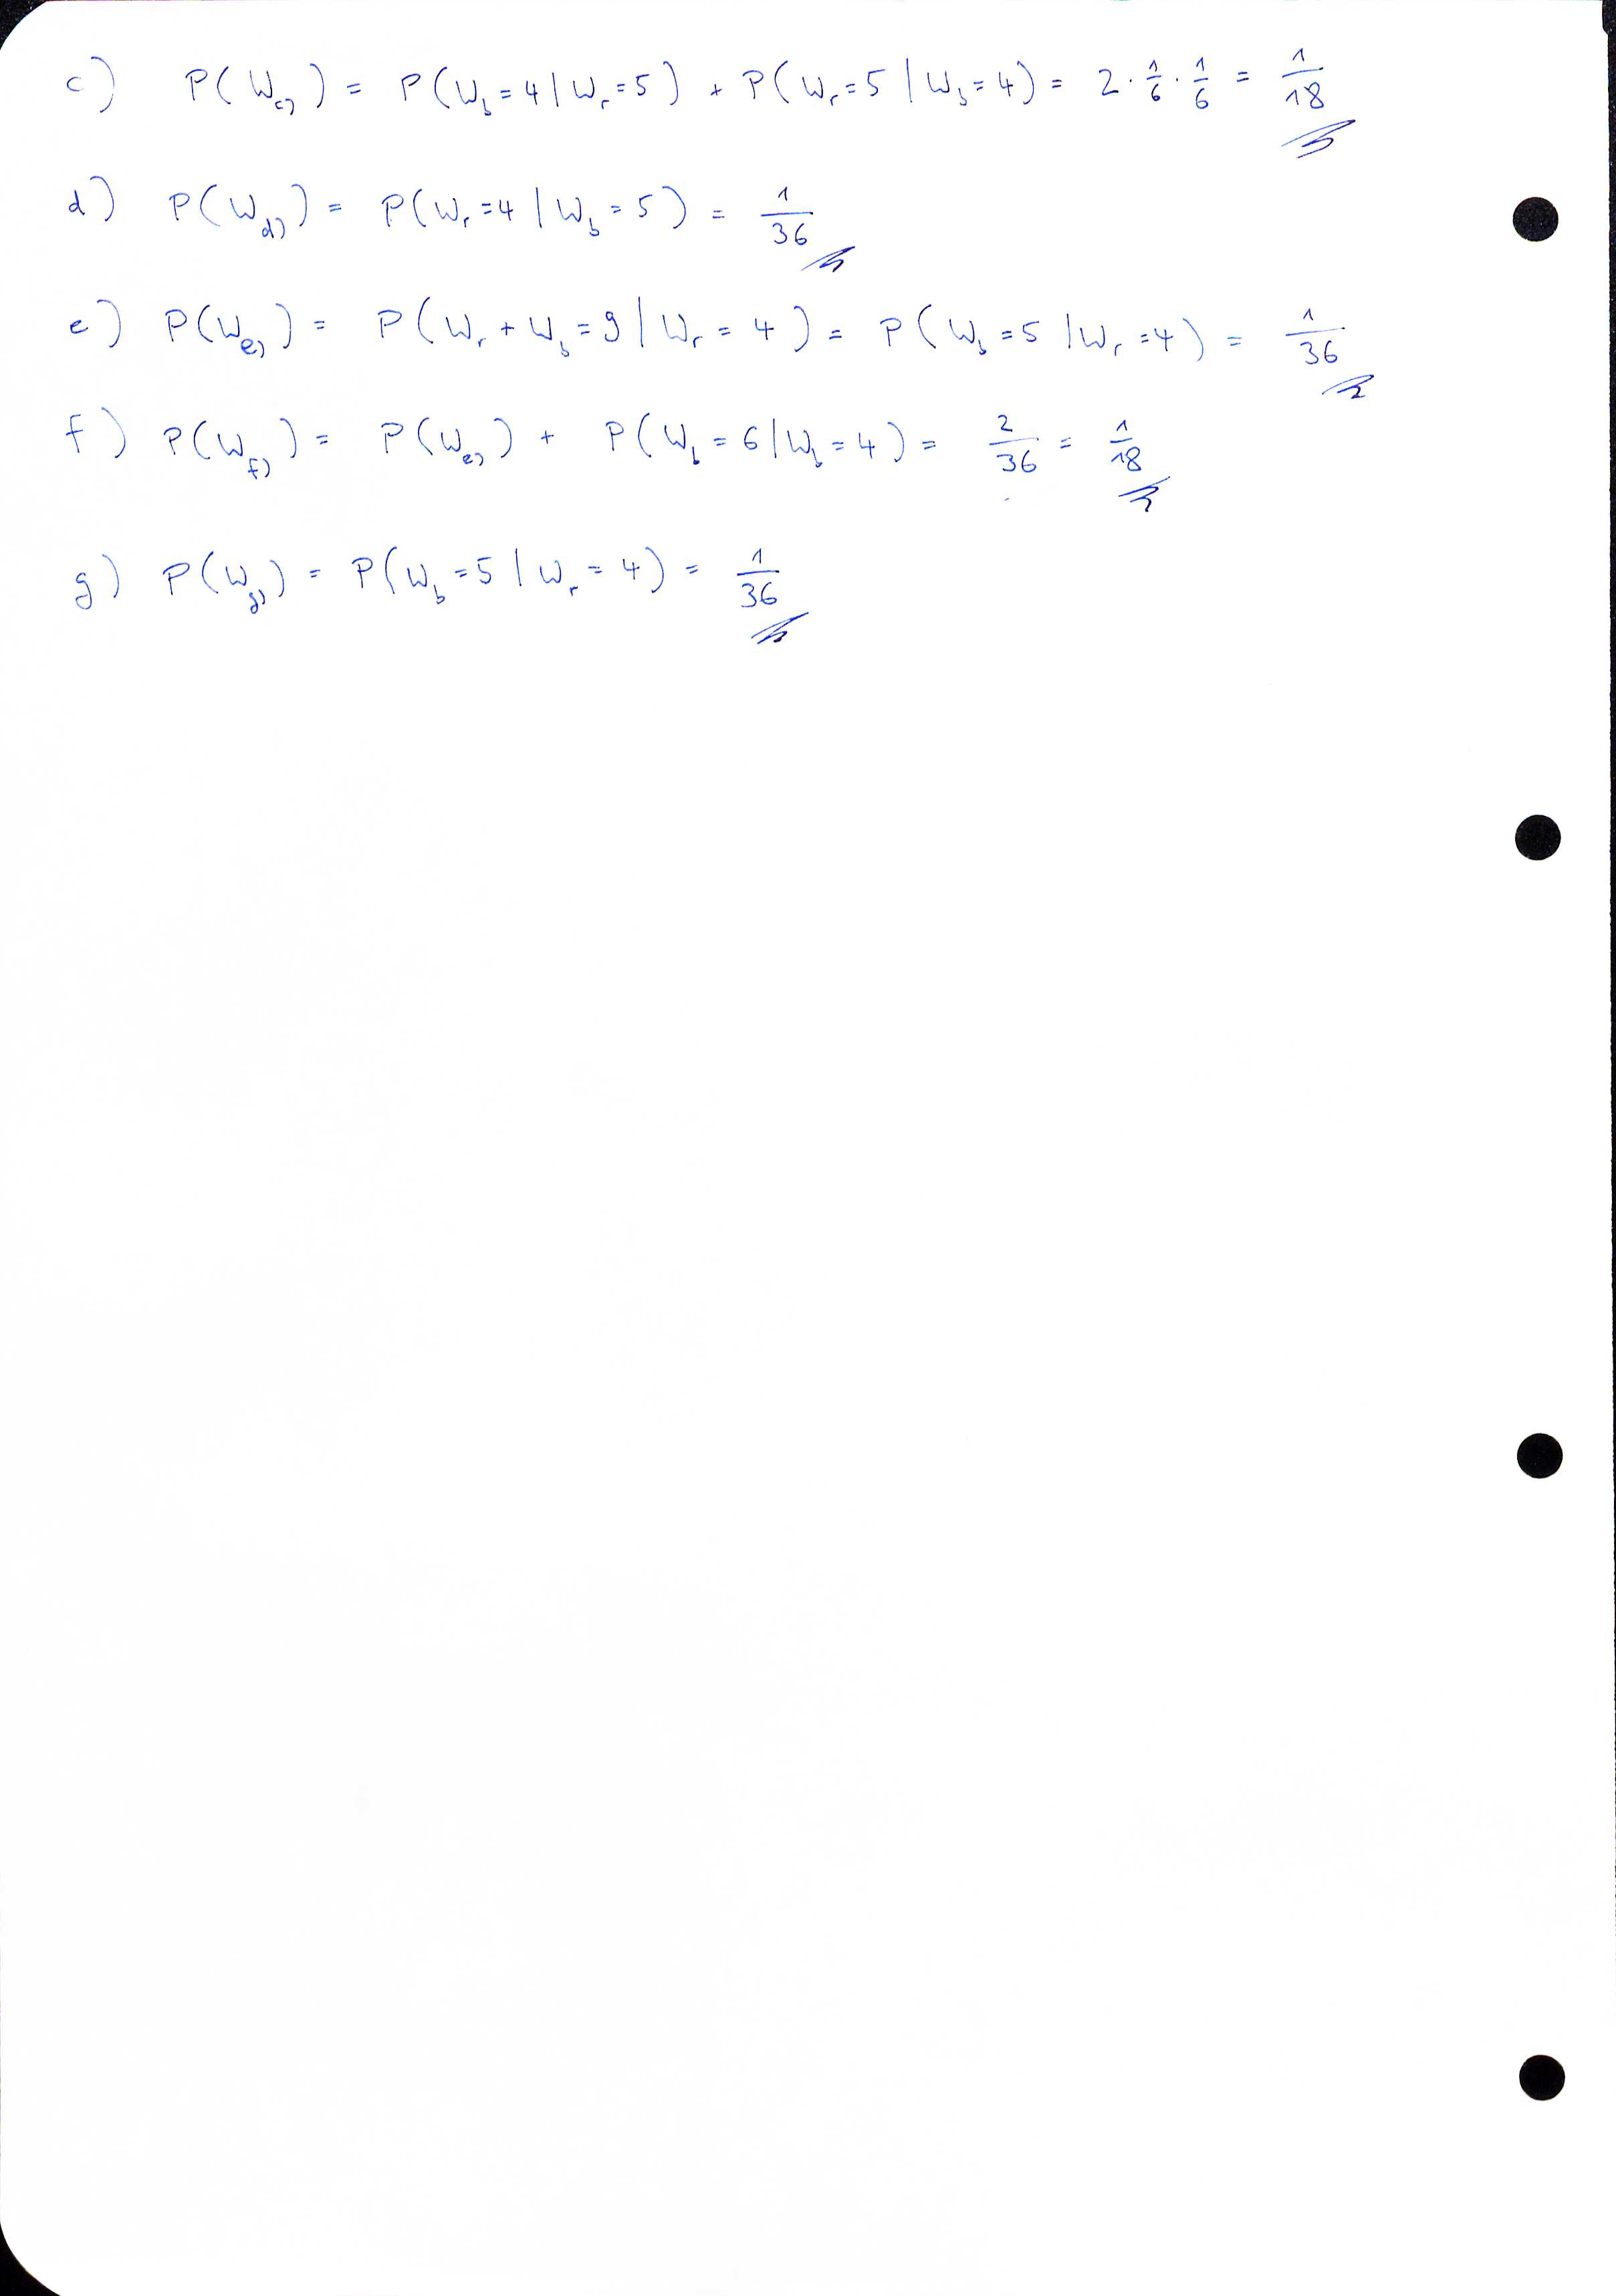 c) P(W_c)) = P(W_b = 4 | W_r = 5) + P(W_r = 5 | W_b = 4) = 2 · 1/6 · 1/6 = 1/18
d) P(W_d)) = P(W_r = 4 | W_b = 5) = 1/36
e) P(W_e)) = P(W_r + W_b = 9 | W_r = 4) = P(W_b = 5 | W_r = 4) = 1/36
f) P(W_f)) = P(W_e)) + P(W_b = 6 | W_b = 4) = 2/36 = 1/18
g) P(W_g)) = P(W_b = 5 | W_r = 4) = 1/36